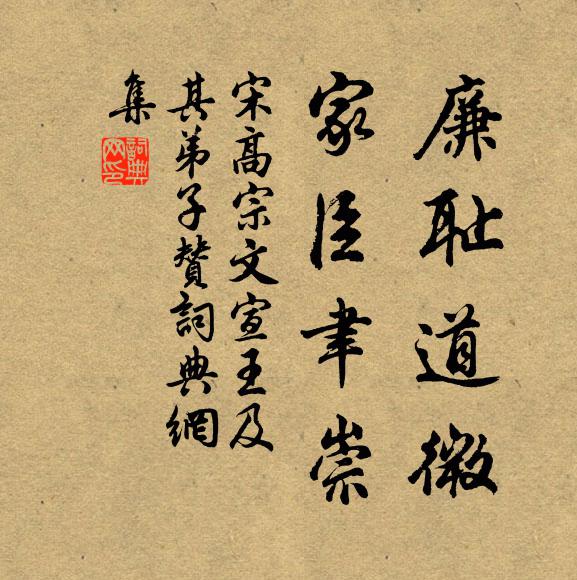 廉耻道微
家臣聿崇
宋高宗文宣王及
其弟子赞詞典網
集
詞典
网印